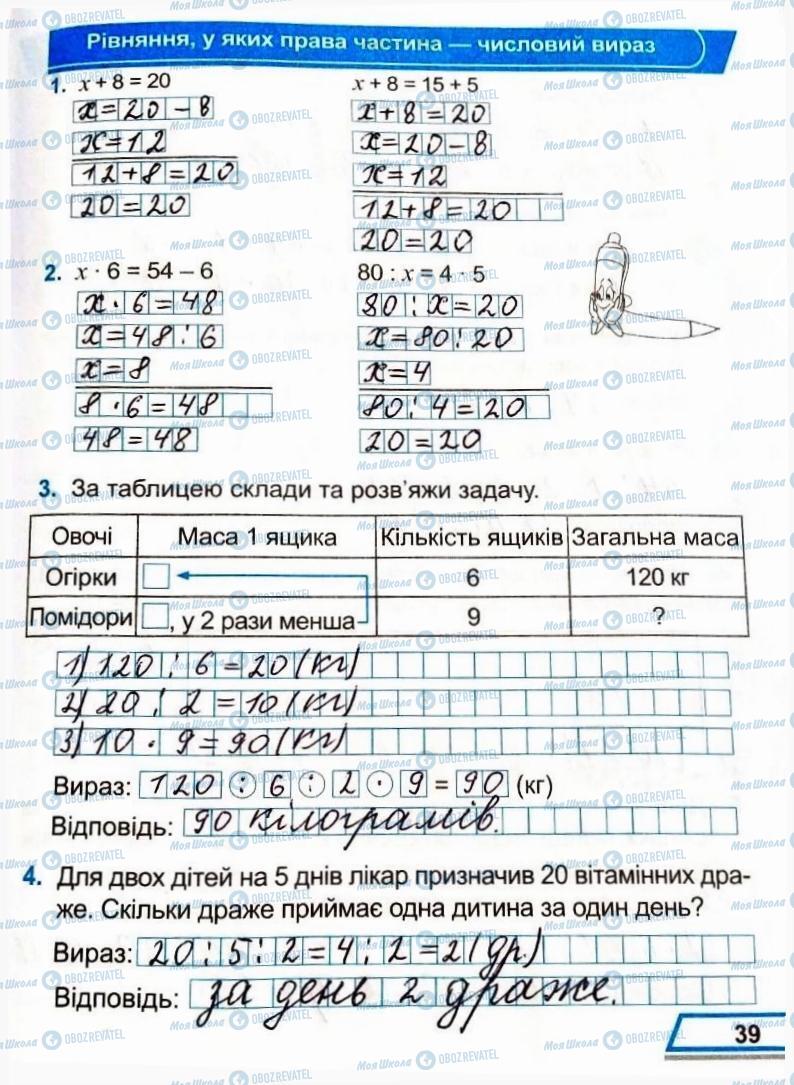 Рівняння, у яких права частина — числовий вираз
1. x + 8 = 20
x = 20 – 8
x = 12
12 + 8 = 20
20 = 20
x + 8 = 15 + 5
x + 8 = 20
x = 20 – 8
x = 12
12 + 8 = 20
20 = 20
2. x · 6 = 54 – 6
x · 6 = 48
x = 48 : 6
x = 8
8 · 6 = 48
48 = 48
80 : x = 4 · 5
80 : x = 20
x = 80 : 20
x = 4
80 : 4 = 20
20 = 20
3. За таблицею склади та розв'яжи задачу.
Овочі Маса 1 ящика Кількість ящиків Загальна маса
Огірки 6 120 кг
Помідори , у 2 рази менша 9 ?
1) 120 : 6 = 20 (кг)
2) 20 : 2 = 10 (кг)
3) 10 · 9 = 90 (кг)
Вираз: 120 : 6 : 2 · 9 = 90 (кг)
Відповідь: 90 кілограмів.
4. Для двох дітей на 5 днів лікар призначив 20 вітамінних дра-
же. Скільки драже приймає одна дитина за один день?
Вираз: 20 : 5 : 2 = 4 : 2 = 2 (др.)
Відповідь: за день 2 драже.
39
МояШкола OBOZREVATEL